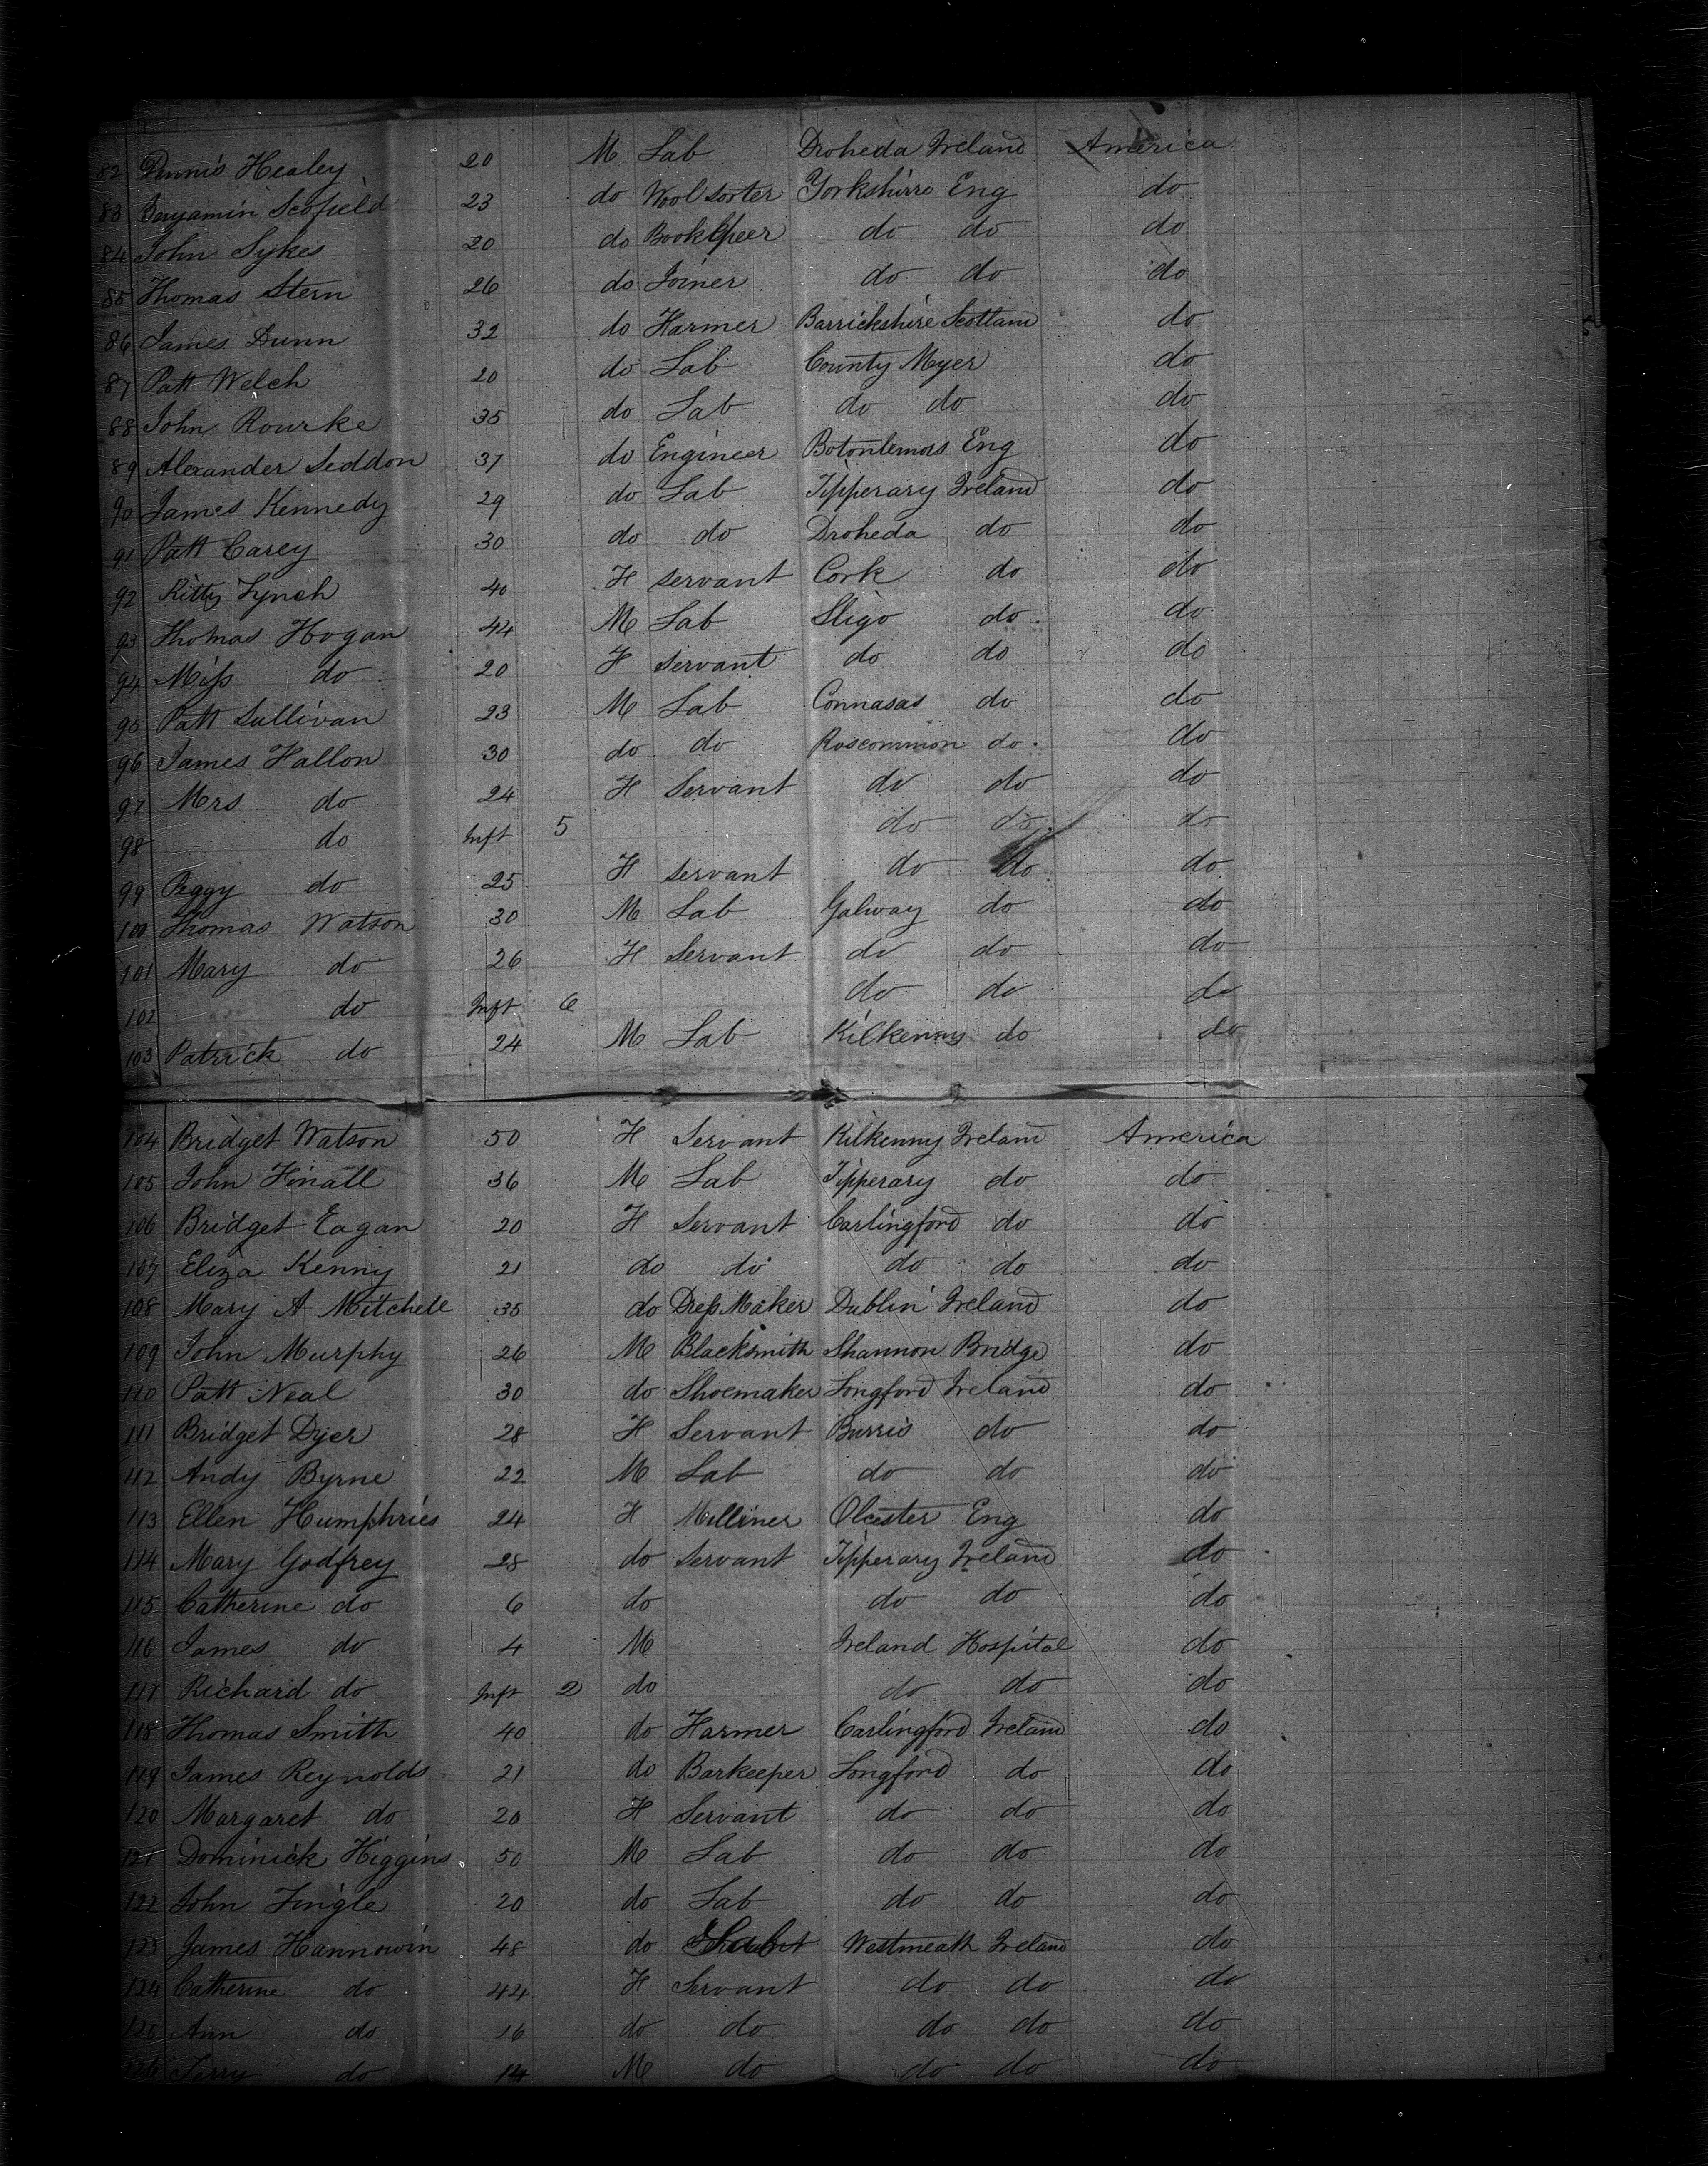 82 Dennis Healey 20 M Lab Droheda Ireland America
83 Benjamin Scofield 23 do Wool sorter Yorkshire Eng do
84 John Sykes 20 do Bookkpeer do do do
85 Thomas Stern 26 do Joiner do do do
86 James Dunn 32 do Farmer Barrickshire Scotland do
87 Patt Welch 20 do Lab County Myer do
88 John Rourke 35 do Lab do do do
89 Alexander Seddon 37 do Engineer Eng do
90 James Kennedy 29 do Lab Tipperary Ireland do
91 Patt Carey 30 do do Droheda do do
92 Kitty Lynch 40 F servant Cork do do
93 Thomas Hogan 44 M Lab Sligo do do
94 Miss do 20 F servant do do do
95 Patt Sullivan 23 M Lab Connasas do do
96 James Fallon 30 do do Roscommon do do
97 Mrs do 24 F Servant do do do
98 do Inft 5 do do do
99 Peggy do 25 F servant do do do
100 Thomas Watson 30 M Lab Galway do do
101 Mary do 26 F Servant do do do
102 do Inft 6 do do do
103 Patrick do 24 M Lab Kilkenny do do
104 Bridget Watson 50 F Servant Kilkenny Ireland America
105 John Finall 36 M Lab Tipperary do do
106 Bridget Eagan 20 F Servant Carlingford do do
107 Eliza Kenny 21 do do do do do
108 Mary A Mitchell 35 do Dress Maker Dublin Ireland do
109 John Murphy 26 M Blacksmith Shannon Bridge do
110 Patt Neal 30 do Shoemaker Longford Ireland do
111 Bridget Dyer 28 F Servant Burris do do
112 Andy Byrne 22 M Lab do do do
113 Ellen Humphries 24 F Milliner Olcester Eng do
114 Mary Godfrey 28 do servant Tipperary Ireland do
115 Catherine do 6 do do do do
116 James do 4 M Ireland Hospital do
117 Richard do Inft 2 do do do do
118 Thomas Smith 40 do Farmer Carlingford Ireland do
119 James Reynolds 21 do Barkeeper Longford do do
120 Margaret do 20 F Servant do do do
121 Dominick Higgins 50 M Lab do do do
122 John Fingle 20 do Lab do do do
123 James Hannowin 48 do Lab Westmeath Ireland do
124 Catherine do 44 F Servant do do do
125 Ann do 16 do do do do do
126 Terry do 14 M do do do do